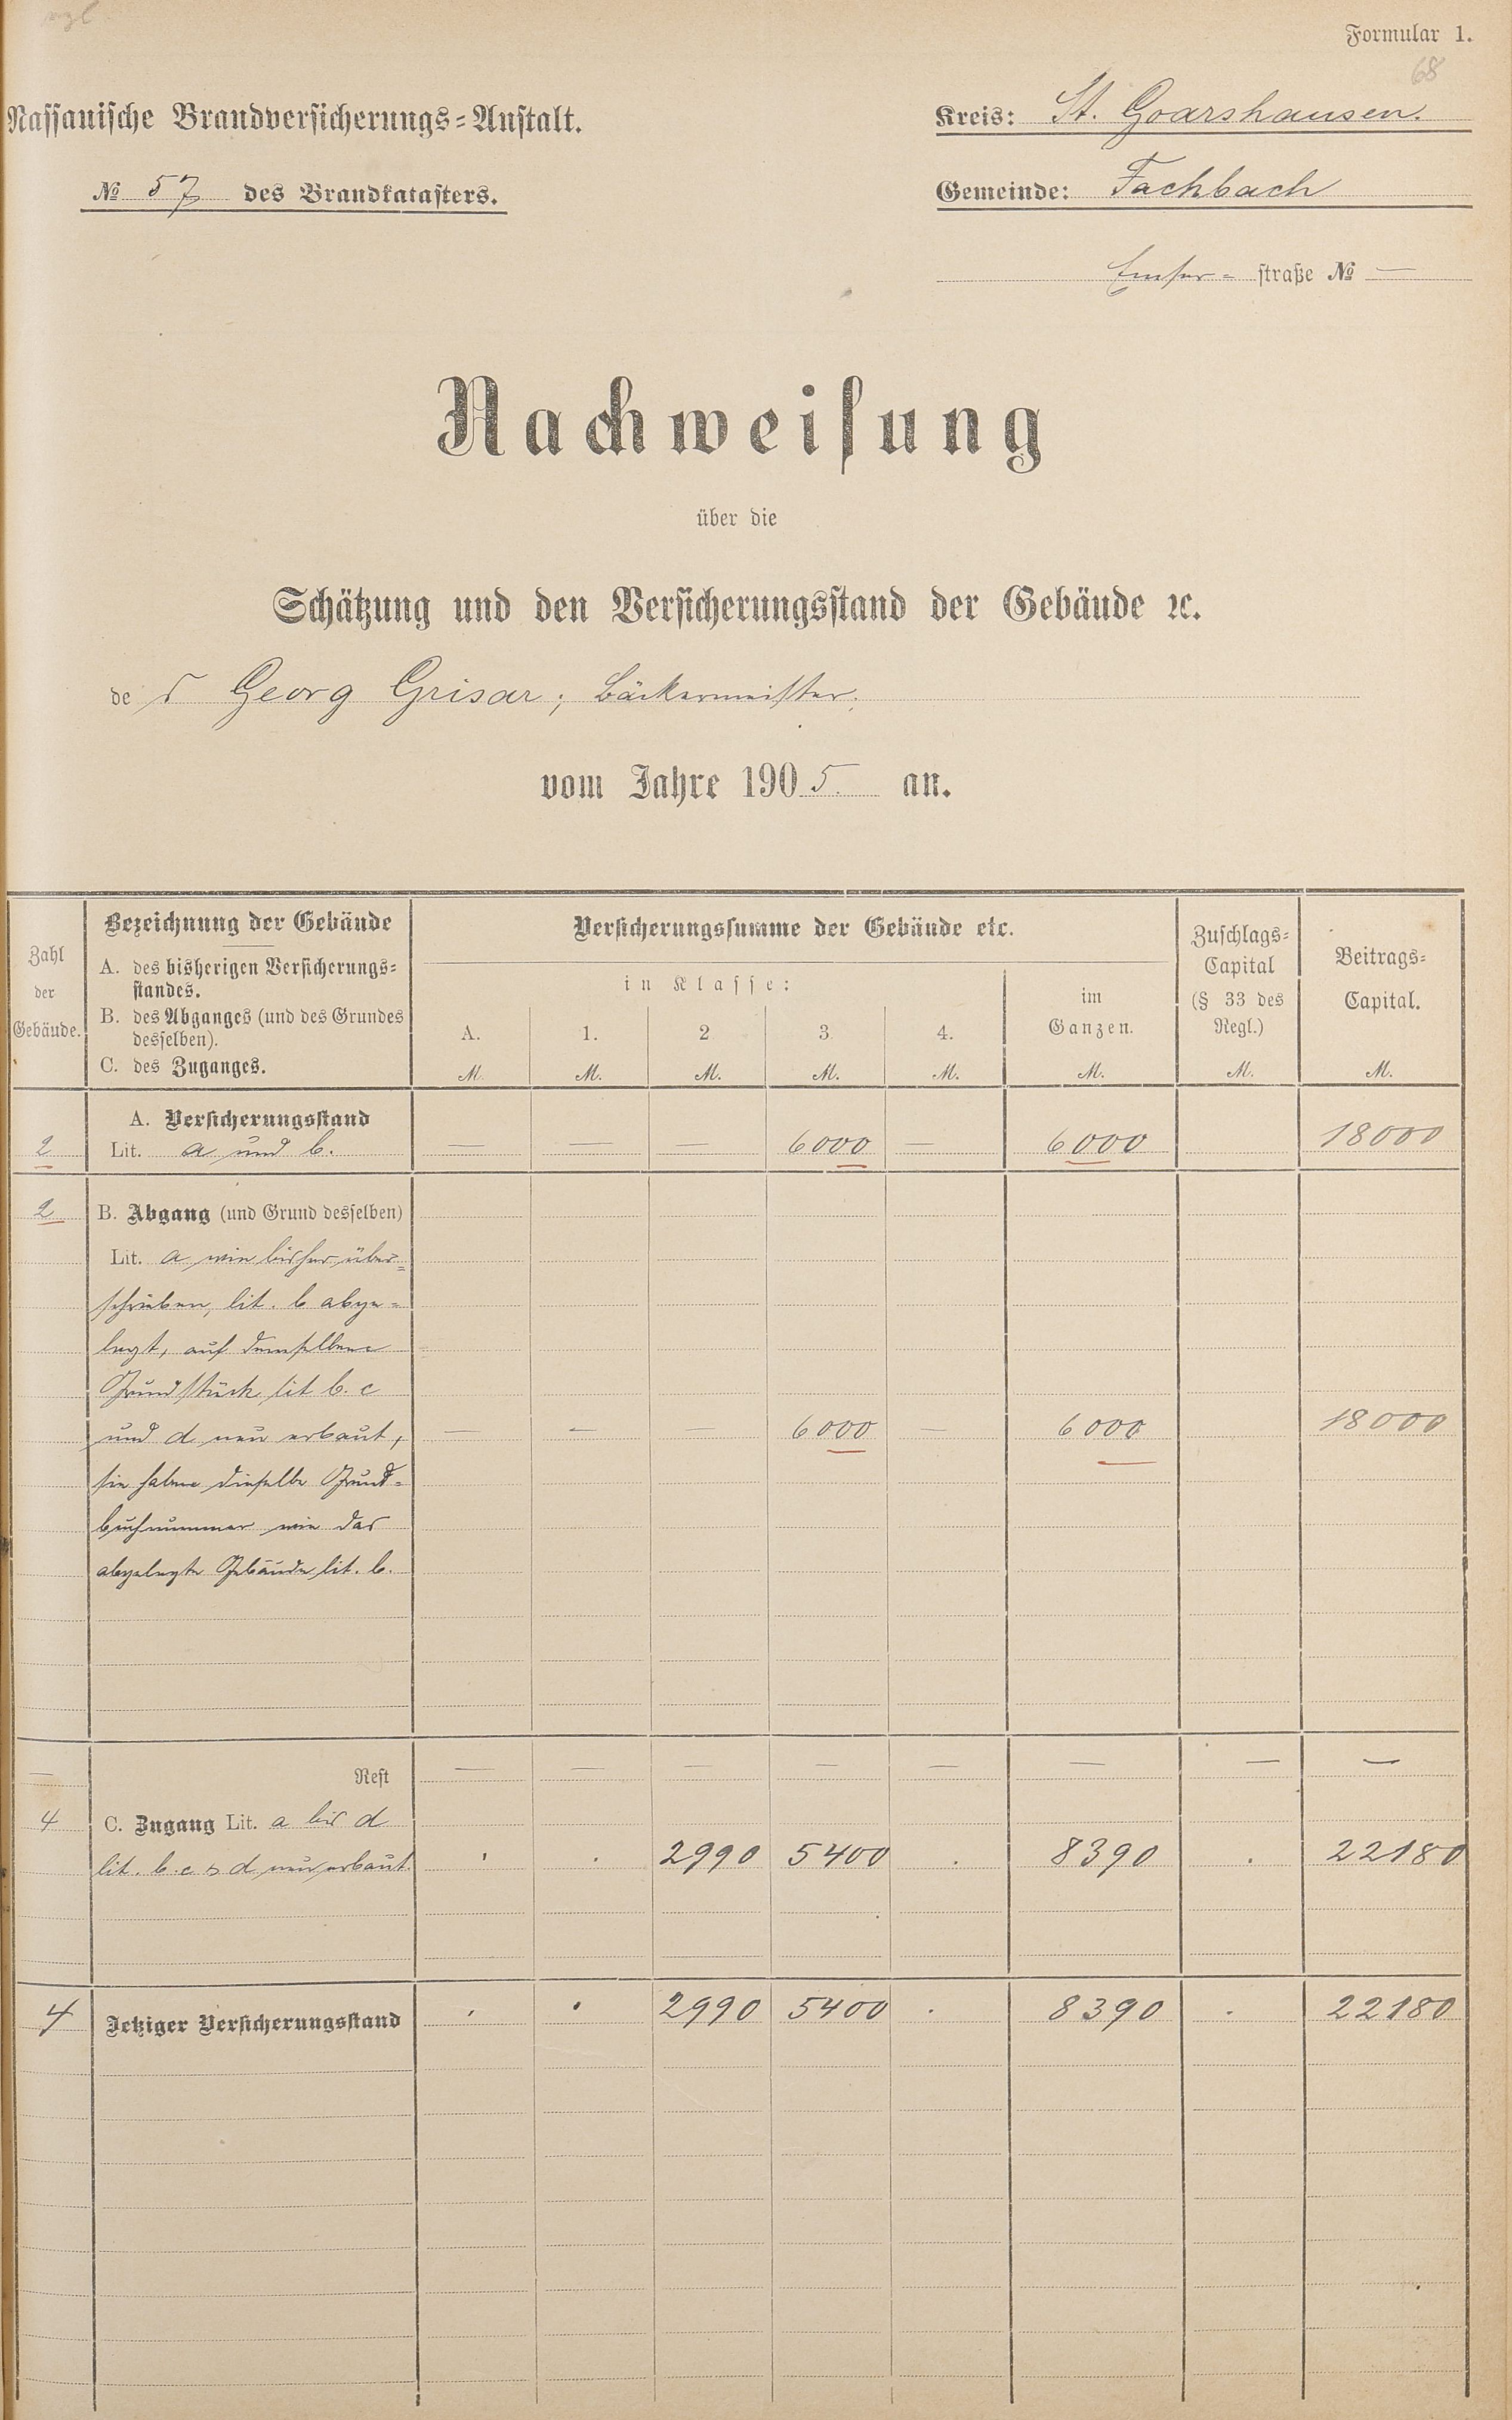 Formular 1.
68
Nassauische Brandversicherungs=Anstalt.
Kreis: St. Goarshausen.
№ 57 des Brandkatasters.
Gemeinde: Fachbach
Emser= straße № —
Nachweisung
über die
Schätzung und den Versicherungsstand der Gebäude ꝛc.
de r Georg Grisar, Bäckermeister.
vom Jahre 1905. an.
Zahl der Gebäude.
Bezeichnung der Gebäude
A. des bisherigen Versicherungs=
standes.
B. des Abganges (und des Grundes
desselben).
C. des Zuganges.
Versicherungssumme der Gebäude etc.
in Klasse:
A. 1. 2 3. 4.
M. M. M. M. M.
im
Ganzen.
M.
Zuschlags=
Capital
(§ 33 des
Regl.)
M.
Beitrags=
Capital.
M.
A. Versicherungsstand
2 Lit. a und b. — — — 6000 — 6000 18000
2 B. Abgang (und Grund desselben)
Lit. a wie bisher über=
schrieben, lit. b abge=
legt, auf demselben
Grundstück lit b. c
und d neu erbaut, — — — 6000 — 6000 18000
sie haben dieselbe Grund=
buchnummer wie das
abgelegte Gebäude lit. b.
— Rest — — — — — — — —
4 C. Zugang Lit. a bis d
lit. b. c u d neu erbaut. 2990 5400 . 8390 . 22180
4 Jetziger Versicherungsstand . . 2990 5400 . 8390 . 22180